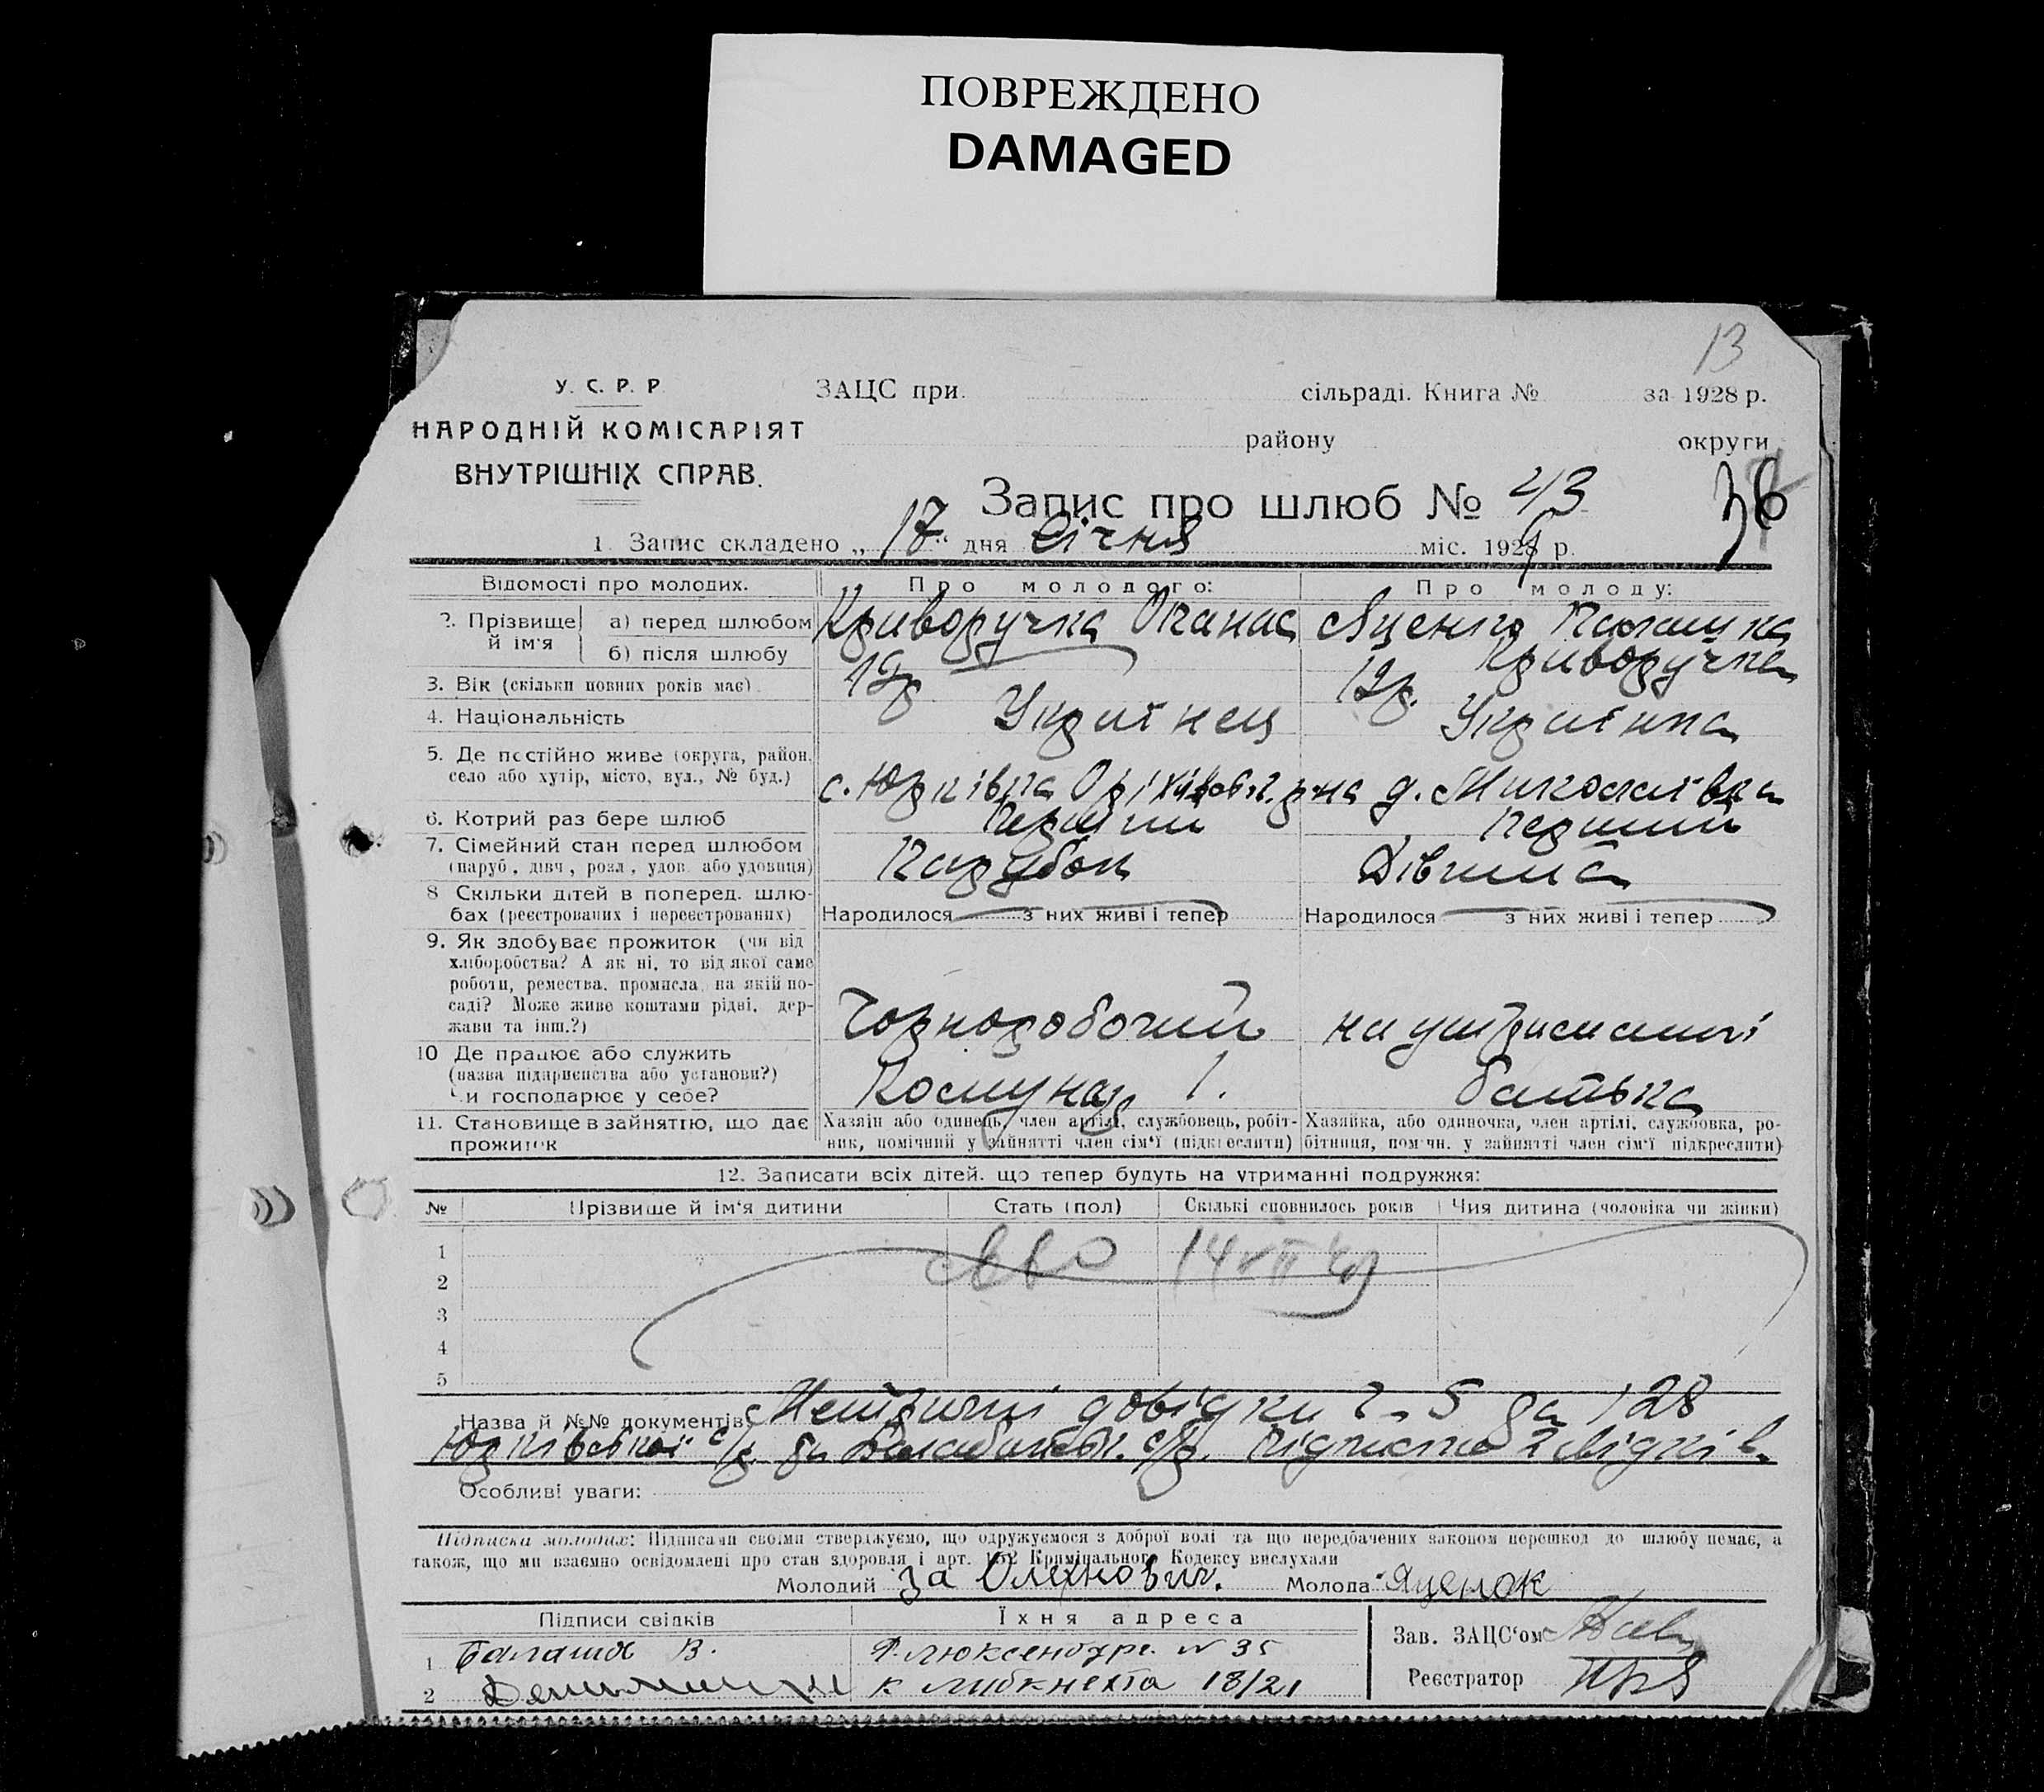 ПОВРЕЖДЕНО
DAMAGED
13
У. С. Р. Р.
НАРОДНІЙ КОМІСАРІЯТ
ВНУТРІШНІХ СПРАВ.
ЗАЦС при сільраді. Книга № за 1928 р.
району округи
Запис про шлюб № 43
36
1. Запис складено „17“ дня Січня міс. 1929 р.
Відомості про молодих. Про молодого: Про молоду:
2. Прізвище й ім'я а) перед шлюбом Криворучка Опанас Яценко Парашка
б) після шлюбу Криворучка
3. Вік (скільки повних років має)
4. Національність Українец Українка
5. Де постійно живе (округа, район,
село або хутір, місто, вул., № буд.) с. Юрківка Оріхівськ. р-на д. Миколаївка
6. Котрий раз бере шлюб Перший Перший
7. Сімейний стан перед шлюбом
(паруб., дівч., розл., удов. або удовиця) Парубок Дівчина
8 Скільки дітей в поперед. шлю-
бах (реєстрованих і нереєстрованих) Народилося з них живі і тепер Народилося з них живі і тепер
9. Як здобуває прожиток (чи від
хліборобства? А як ні, то від якої саме
роботи, ремества, промисла, на якій по-
саді? Може живе коштами рідні, дер-
жави та інш.?) Чорноробочий на утриманні
10 Де працює або служить
(назва підприємства або установи?)
Чи господарює у себе? Комунар 1. батька
11. Становище в зайняттю, що дає
прожиток
Хазяїн або одинець, член артілі, службовець, робіт-
ник, помічний у зайнятті член сім'ї (підкреслити)
Хазяйка, або одиночка, член артілі, службовка, ро-
бітниця, пом'чн. у зайнятті член сім'ї підкреслити)
12. Записати всіх дітей, що тепер будуть на утриманні подружжя:
№ Прізвище й ім'я дитини Стать (пол) Скількі сповнилось років Чия дитина (чоловіка чи жінки)
1
2
3
4
5
Назва й №№ документів: Метричні довідки 2 5 за 128
Юрківської с/р. та с/р. підписка 2 свідків.
Особливі уваги:
Підписка молодих: Підписами своїми стверджуємо, що одружуємося з доброї волі та що передбачених законом перешкод до шлюбу немає, а
також, що ми взаємно освідомлені про стан здоровля і арт. 152 Кримінального Кодексу вислухали
Молодий за Молода Яценок
Підписи свідків Їхня адреса
1 В. Р. Люксенбург. № 35
2 К Либкнехта 18/21
Зав. ЗАЦС'ом
Реєстратор